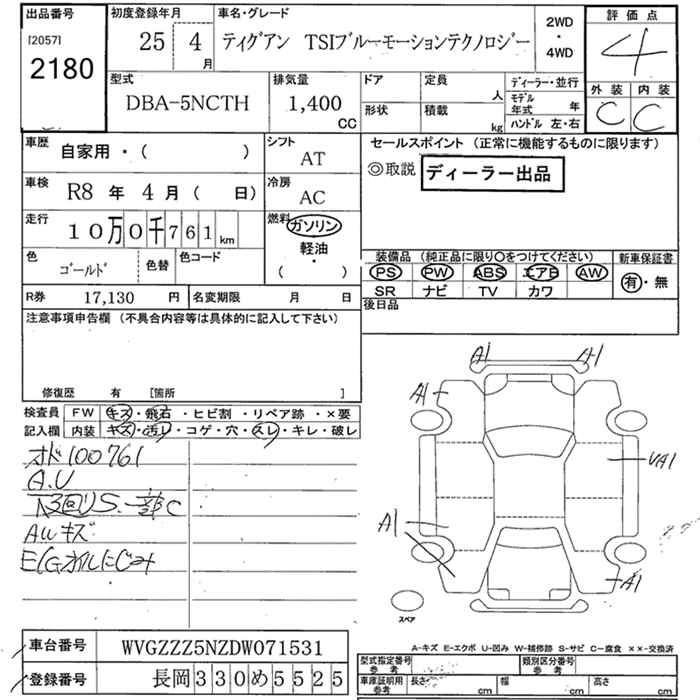 出品番号
[2057]
2180
初度登録年月
25 4 月
車名・グレード
ティグアン TSIブルーモーションテクノロジー
2WD
・
4WD
評価点
4
外装 内装
C C
型式
DBA-5NCTH
排気量
1,400
CC
ドア
形状
定員
人
積載
kg
ディーラー・並行
モデル年式 年
ハンドル 左・右
車歴
自家用・( )
シフト
AT
車検
R8 年 4 月 ( 日)
冷房
AC
走行
10万0千761km
燃料
ガソリン
軽油
・
( )
色
ゴールド
色替
色コード
R券 17,130 円
名変期限 月 日
セールスポイント (正常に機能するものに限ります)
◎取説 ディーラー出品
装備品 (純正品に限り○をつけてください)
PS PW ABS エアB AW
SR ナビ TV カワ
新車保証書
有・無
後日品
注意事項申告欄 (不具合内容等は具体的に記入して下さい)
修復歴 有 [箇所 ]
検査員
記入欄
FW キズ・飛石・ヒビ割・リペア跡・×要
内装 キズ・汚レ・コゲ・穴・スレ・キレ・破レ
オド100761
A.U
回りS.一部C
AWキズ
E/Gオイルにじみ
A1
A1
A1
UA1
A1
A1
スペア
A-キズ E-エクボ U-凹み W-補修跡 S-サビ C-腐食 ××-交換済
車台番号 WVGZZZ5NZDW071531
登録番号 長岡330め5525
型式指定番号
参考
類別区分番号
参考
車庫証明用
参考
長さ cm
幅 cm
高さ cm